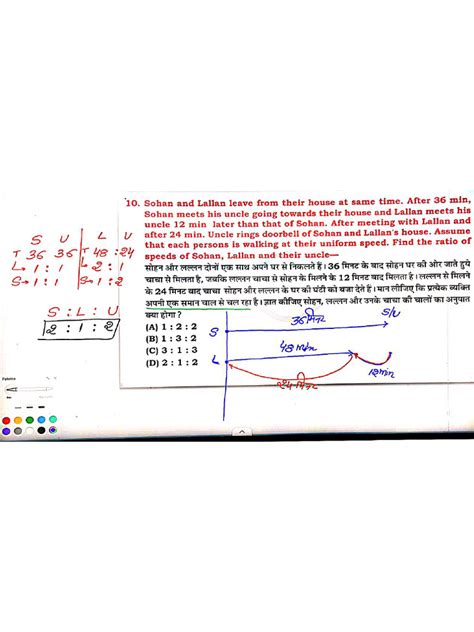 10. Sohan and Lallan leave from their house at same time. After 36 min,
Sohan meets his uncle going towards their house and Lallan meets his
uncle 12 min later than that of Sohan. After meeting with Lallan and
after 24 min. Uncle rings doorbell of Sohan and Lallan's house. Assume
that each persons is walking at their uniform speed. Find the ratio of
speeds of Sohan, Lallan and their uncle—
सोहन और लल्लन दोनों एक साथ अपने घर से निकलते हैं। 36 मिनट के बाद सोहन घर की ओर जाते हुये
चाचा से मिलता है, जबकि लल्लन चाचा से सोहन के मिलने के 12 मिनट बाद मिलता है। लल्लन से मिलने
के 24 मिनट बाद चाचा सोहन और लल्लन के घर की घंटी को बजा देते हैं। मान लीजिए कि प्रत्येक व्यक्ति
अपनी एक समान चाल से चल रहा है। ज्ञात कीजिए सोहन, लल्लन और उनके चाचा की चालों का अनुपात
क्या होगा ?
(A) 1 : 2 : 2
(B) 1 : 3 : 2
(C) 3 : 1 : 3
(D) 2 : 1 : 2
S U L U
T 36 36 T 48 : 24
L→ 1 : 1 L→ 2 : 1
S→ 1 : 1 S→ 1 : 2
S : L : U
2 : 1 : 2
36 मिनट
S/U
S
48 min
L
12min
24 मिनट